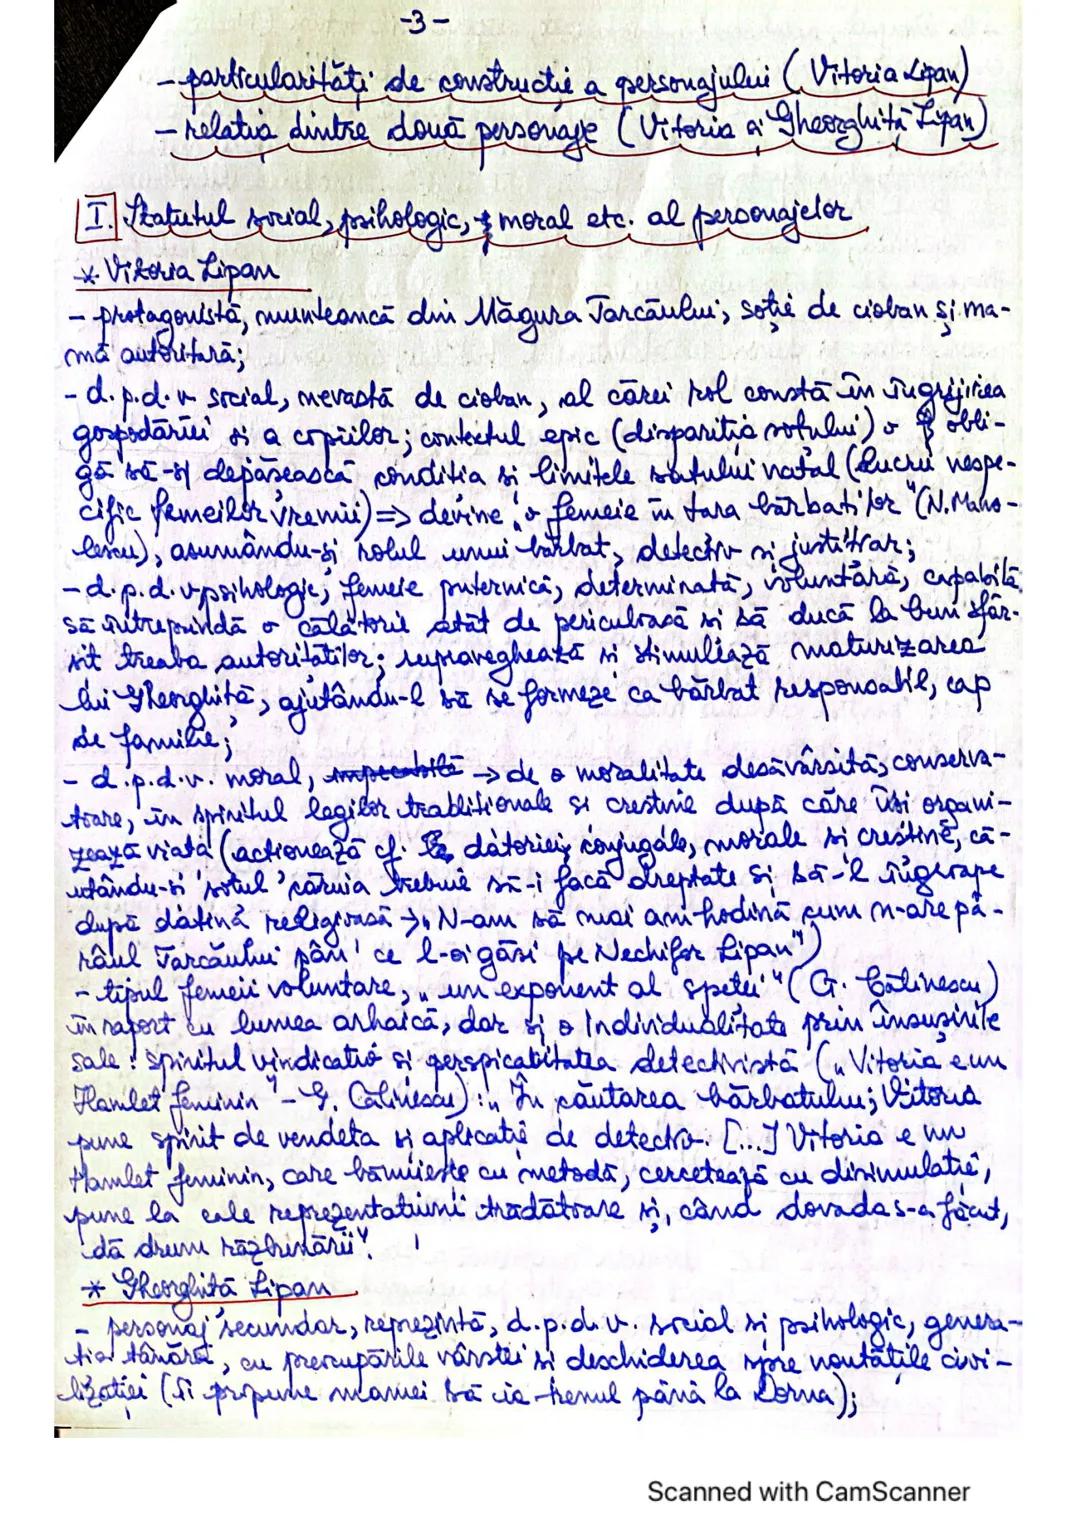 -3-
- particularități de construcție a personajului (Vitoria Lipan)
- relația dintre două personaje (Vitoria și Gheorghiță Lipan)
I. Statutul social, psihologic, moral etc. al personajelor
* Vitoria Lipan
- protagonistă, munteancă din Măgura Tarcăului, soție de cioban și ma-
mă autoritară;
- d.p.d.v social, nevastă de cioban, al cărei rol constă în îngrijirea
gospodăriei și a copiilor; contextul epic (dispariția soțului) o obli-
gă să-și depășească condiția și limitele satului natal (lucru nespe-
cific femeilor vremii) => devine „o femeie în țara bărbaților" (N. Mano-
lescu), asumându-și rolul unui bărbat, detectiv și justițiar;
- d.p.d.v psihologic, femeie puternică, determinată, voluntară, capabilă
să întreprindă o călătorie atât de periculoasă și să ducă la bun sfâr-
șit treaba autorităților; supraveghează și stimulează maturizarea
lui Gheorghiță, ajutându-l să se formeze ca bărbat responsabil, cap
de familie;
- d.p.d.v. moral, impecabilă → de o moralitate desăvârșită, conserva-
toare, în spiritul legilor tradiționale și creștine după care își organi-
zează viața (acționează cf. datoriei conjugale, morale și creștine, că-
utându-și soțul căruia trebuie să-i facă dreptate și să-l îngroape
după datina religioasă → „N-am să mai am hodină cum n-are pâ-
râul Tarcăului pân' ce l-oi găsi pe Nechifor Lipan")
- tipul femeii voluntare, „un exponent al speței" (G. Călinescu)
în raport cu lumea arhaică, dar și o individualitate prin însușirile
sale: spiritul vindicativ și perspicabitatea detectivistă („Vitoria e un
Hamlet feminin" - G. Călinescu): „În căutarea bărbatului, Vitoria
pune spirit de vendeta și aplicație de detectiv. [...] Vitoria e un
Hamlet feminin, care bănuiește cu metodă, cercetează cu disimulație,
pune la cale reprezentațiuni trădătoare și, când dovada s-a făcut,
dă drum răzbunării".
* Gheorghiță Lipan
- personaj secundar, reprezintă, d.p.d.v. social și psihologic, genera-
ția tânără, cu preocupările vârstei și deschiderea spre noutățile civi-
lizației (îi propune mamei să ia trenul până la Dorna);
Scanned with CamScanner